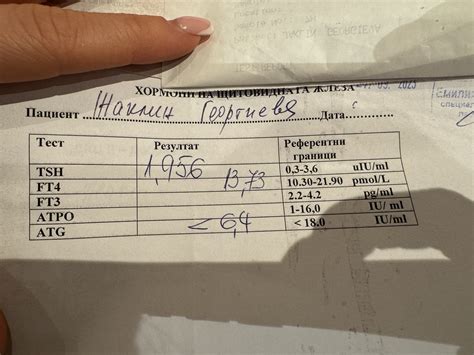 ХОРМОНИ НА ЩИТОВИДНАТА ЖЛЕЗА
Пациент Жаклин Георгиева Дата
Тест Резултат Референтни граници
TSH 1,956 0,3-3,6 uIU/ml
FT4 13,73 10.30-21.90 pmol/L
FT3 2.2-4.2 pg/ml
ATPO < 6,4 1-16,0 IU/ ml
ATG < 18.0 IU/ml